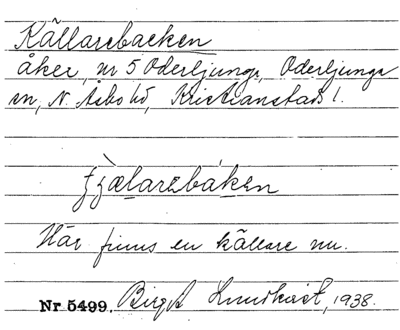 Källarebacken
åker, nr 5 Oderljunga, Oderljunga
sn, N. Åsbo hd, Kristianstads l.
källarebáken
Här finns en källare nu.
Nr 5499. Birgit Lundkvist, 1938.